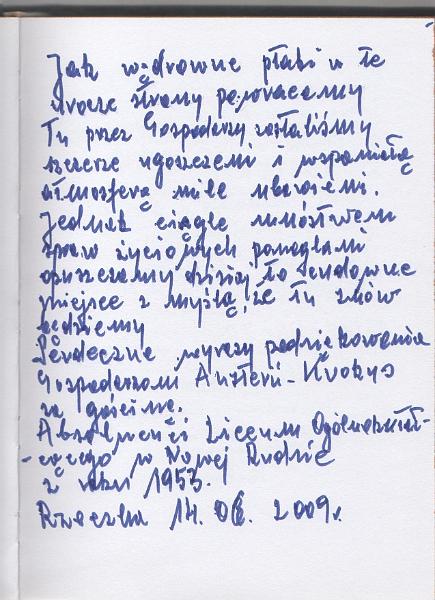 Jak wędrowne ptaki w te
urocze strony powracamy
Tu przez Gospodarzy zostaliśmy
szczerze ugoszczeni i wspaniałą
atmosferą mile ubawieni.
Jednak ciągle mnóstwem
spraw życiowych ponaglani
opuszczamy dzisiaj to cudowne
miejsce z myślą, że tu znów
będziemy
Serdeczne wyrazy podziękowania
Gospodarzom Austerii - Kwokus
za gościnę.
Absolwenci Liceum Ogólnokształ-
-cącego w Nowej Rudzie
z roku 1953.
Rzeczka 14. 06. 2009r.